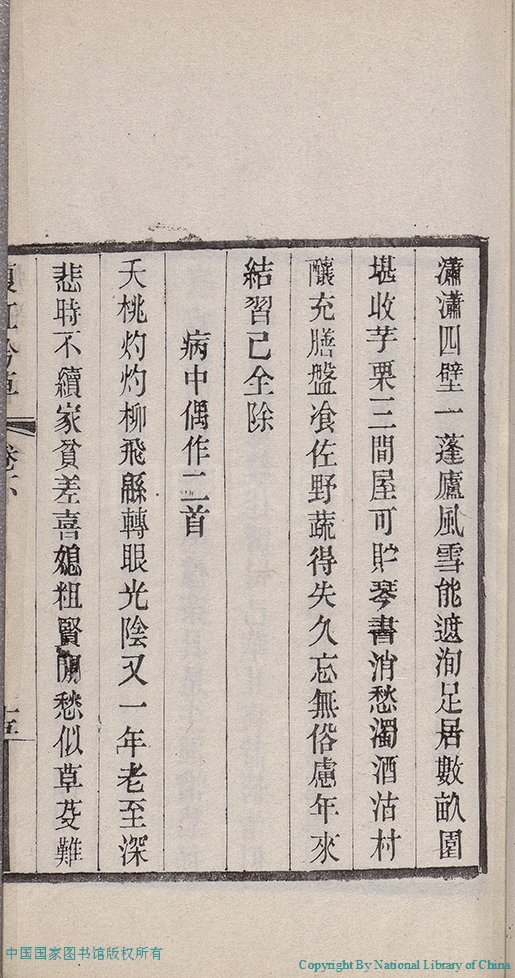 瀟瀟四壁一蓬廬風雪能遮洵足居數畝園
堪收芋栗三間屋可貯琴書消愁濁酒沽村
釀充膳盤飡佐野蔬得失久忘無俗慮年來
結習已全除
病中偶作二首
夭桃灼灼柳飛緜轉眼光陰又一年老至深
悲時不續家貧差喜媳粗賢閒愁似草芟難
中国国家图书馆版权所有
Copyright By National Library of China